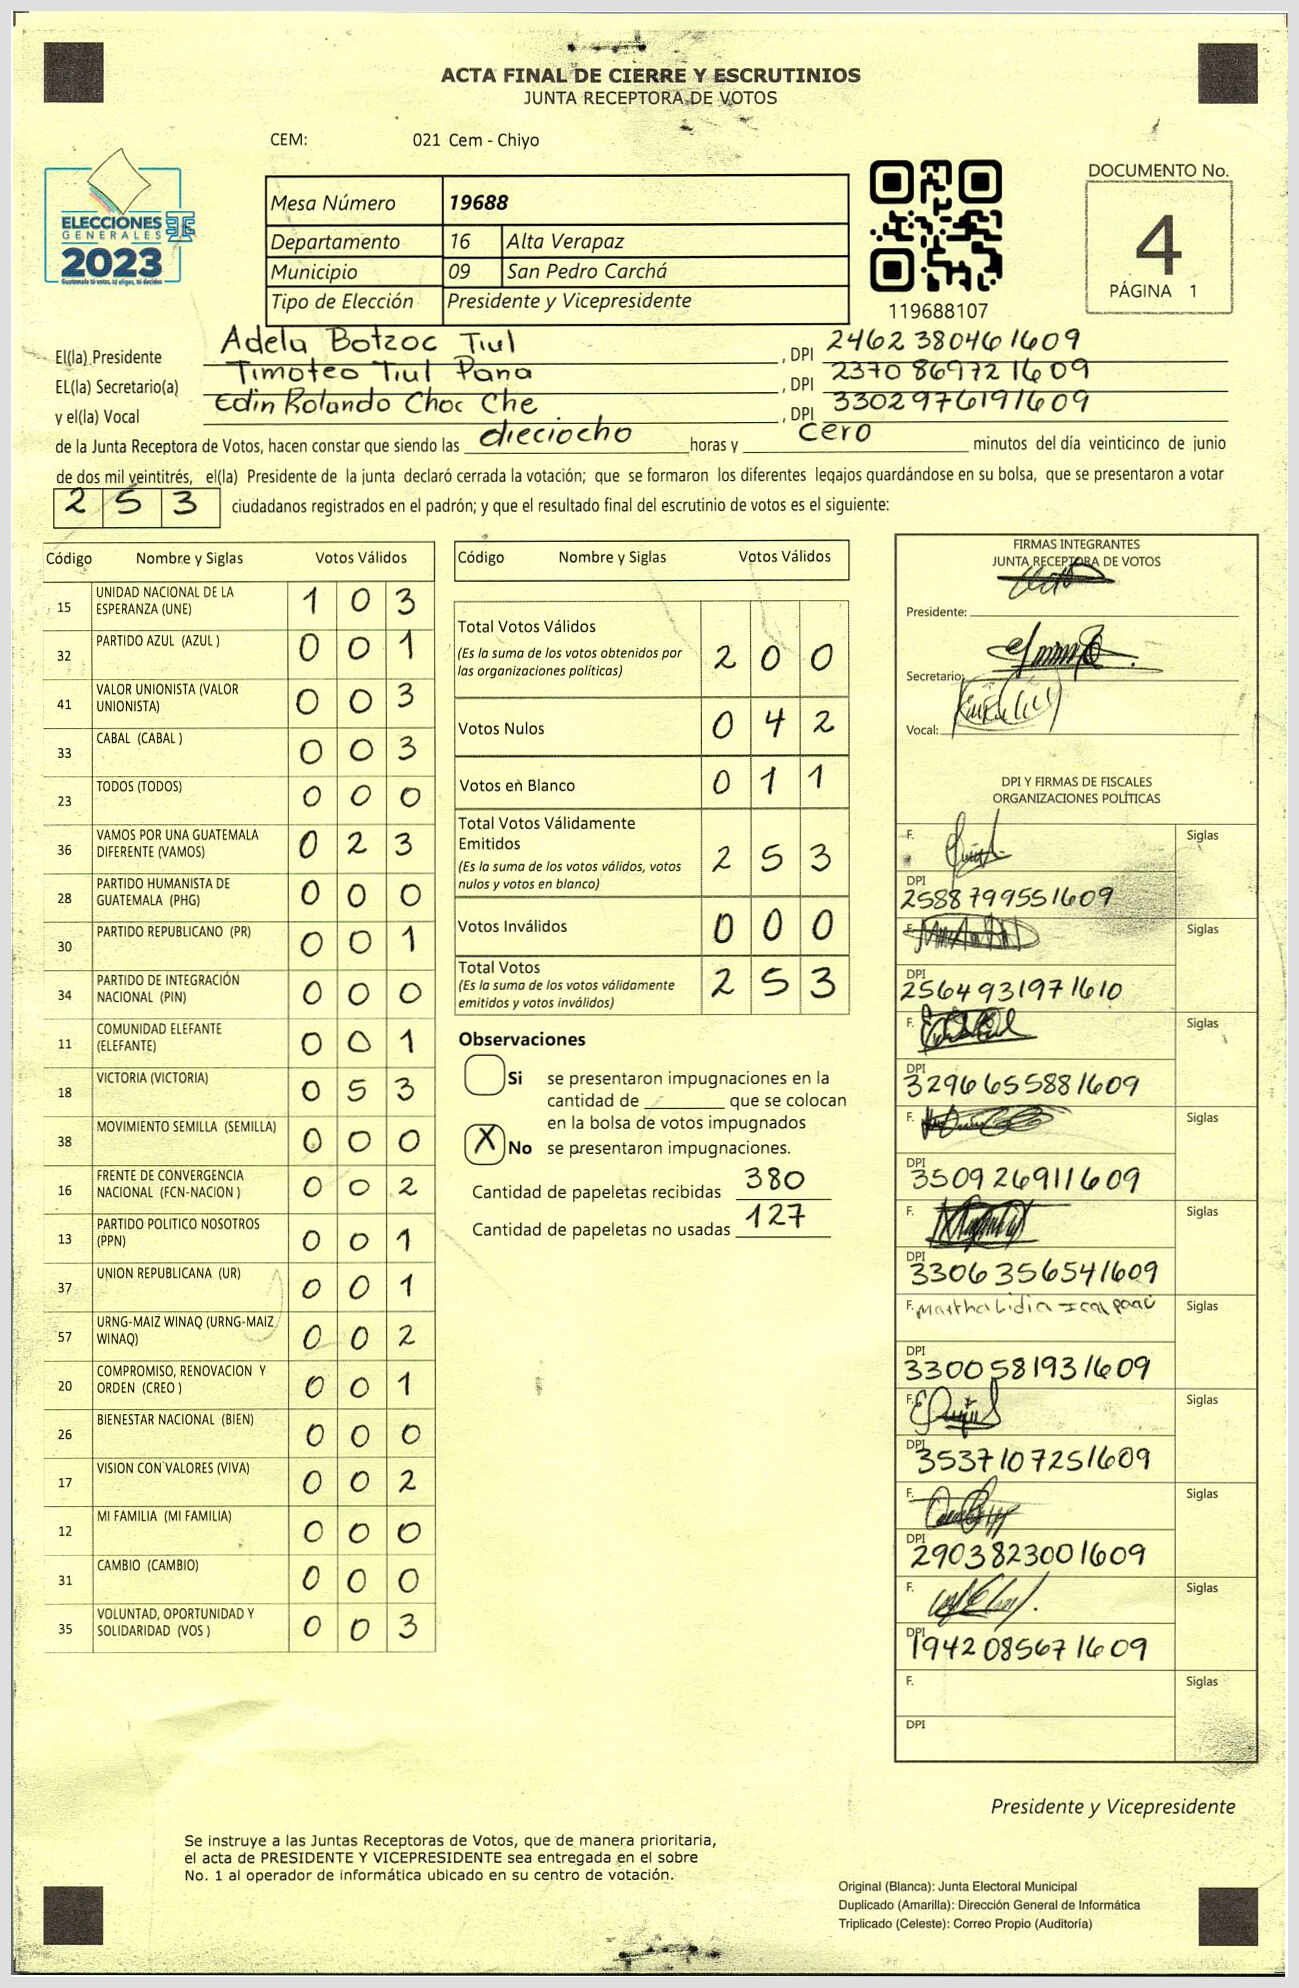 ACTA FINAL DE CIERRE Y ESCRUTINIOS
JUNTA RECEPTORA DE VOTOS
CEM: 021 Cem - Chiyo
ELECCIONES
GENERALES
2023
Mesa Número 19688
Departamento 16 Alta Verapaz
Municipio 09 San Pedro Carchá
Tipo de Elección Presidente y Vicepresidente
119688107
DOCUMENTO No.
4
PÁGINA 1
El(la) Presidente Adela Botzoc Tiul, DPI 2462380461609
EL(la) Secretario(a) Timoteo Tiul Pana, DPI 2370869721609
y el(la) Vocal Edin Rolando Choc Che, DPI 3302976191609
de la Junta Receptora de Votos, hacen constar que siendo las dieciocho horas y cero minutos del día veinticinco de junio
de dos mil veintitrés, el(la) Presidente de la junta declaró cerrada la votación; que se formaron los diferentes legajos guardándose en su bolsa, que se presentaron a votar
253 ciudadanos registrados en el padrón; y que el resultado final del escrutinio de votos es el siguiente:
Código Nombre y Siglas Votos Válidos
15 UNIDAD NACIONAL DE LA ESPERANZA (UNE) 1 0 3
32 PARTIDO AZUL (AZUL ) 0 0 1
41 VALOR UNIONISTA (VALOR UNIONISTA) 0 0 3
33 CABAL (CABAL ) 0 0 3
23 TODOS (TODOS) 0 0 0
36 VAMOS POR UNA GUATEMALA DIFERENTE (VAMOS) 0 2 3
28 PARTIDO HUMANISTA DE GUATEMALA (PHG) 0 0 0
30 PARTIDO REPUBLICANO (PR) 0 0 1
34 PARTIDO DE INTEGRACIÓN NACIONAL (PIN) 0 0 0
11 COMUNIDAD ELEFANTE (ELEFANTE) 0 0 1
18 VICTORIA (VICTORIA) 0 5 3
38 MOVIMIENTO SEMILLA (SEMILLA) 0 0 0
16 FRENTE DE CONVERGENCIA NACIONAL (FCN-NACION ) 0 0 2
13 PARTIDO POLITICO NOSOTROS (PPN) 0 0 1
37 UNION REPUBLICANA (UR) 0 0 1
57 URNG-MAIZ WINAQ (URNG-MAIZ WINAQ) 0 0 2
20 COMPROMISO, RENOVACION Y ORDEN (CREO ) 0 0 1
26 BIENESTAR NACIONAL (BIEN) 0 0 0
17 VISION CON VALORES (VIVA) 0 0 2
12 MI FAMILIA (MI FAMILIA) 0 0 0
31 CAMBIO (CAMBIO) 0 0 0
35 VOLUNTAD, OPORTUNIDAD Y SOLIDARIDAD (VOS ) 0 0 3
Código Nombre y Siglas Votos Válidos
Total Votos Válidos 2 0 0
(Es la suma de los votos obtenidos por
las organizaciones políticas)
Votos Nulos 0 4 2
Votos en Blanco 0 1 1
Total Votos Válidamente
Emitidos 2 5 3
(Es la suma de los votos válidos, votos
nulos y votos en blanco)
Votos Inválidos 0 0 0
Total Votos 2 5 3
(Es la suma de los votos válidamente
emitidos y votos inválidos)
Observaciones
Si se presentaron impugnaciones en la
cantidad de ________ que se colocan
en la bolsa de votos impugnados
X No se presentaron impugnaciones.
Cantidad de papeletas recibidas 380
Cantidad de papeletas no usadas 127
FIRMAS INTEGRANTES
JUNTA RECEPTORA DE VOTOS
Presidente:
Secretario:
Vocal:
DPI Y FIRMAS DE FISCALES
ORGANIZACIONES POLÍTICAS
F. Siglas
DPI 2588799551609
F. Siglas
DPI 2564931971610
F. Siglas
DPI 3296655881609
F. Siglas
DPI 3509269111609
F. Siglas
DPI 3306356541609
F. Martha Lidia Siglas
DPI 3300581931609
F. Siglas
DPI 3537107251609
F. Siglas
DPI 2903823001609
F. Siglas
DPI 1942085671609
F. Siglas
DPI
Presidente y Vicepresidente
Se instruye a las Juntas Receptoras de Votos, que de manera prioritaria,
el acta de PRESIDENTE Y VICEPRESIDENTE sea entregada en el sobre
No. 1 al operador de informática ubicado en su centro de votación.
Original (Blanca): Junta Electoral Municipal
Duplicado (Amarilla): Dirección General de Informática
Triplicado (Celeste): Correo Propio (Auditoría)